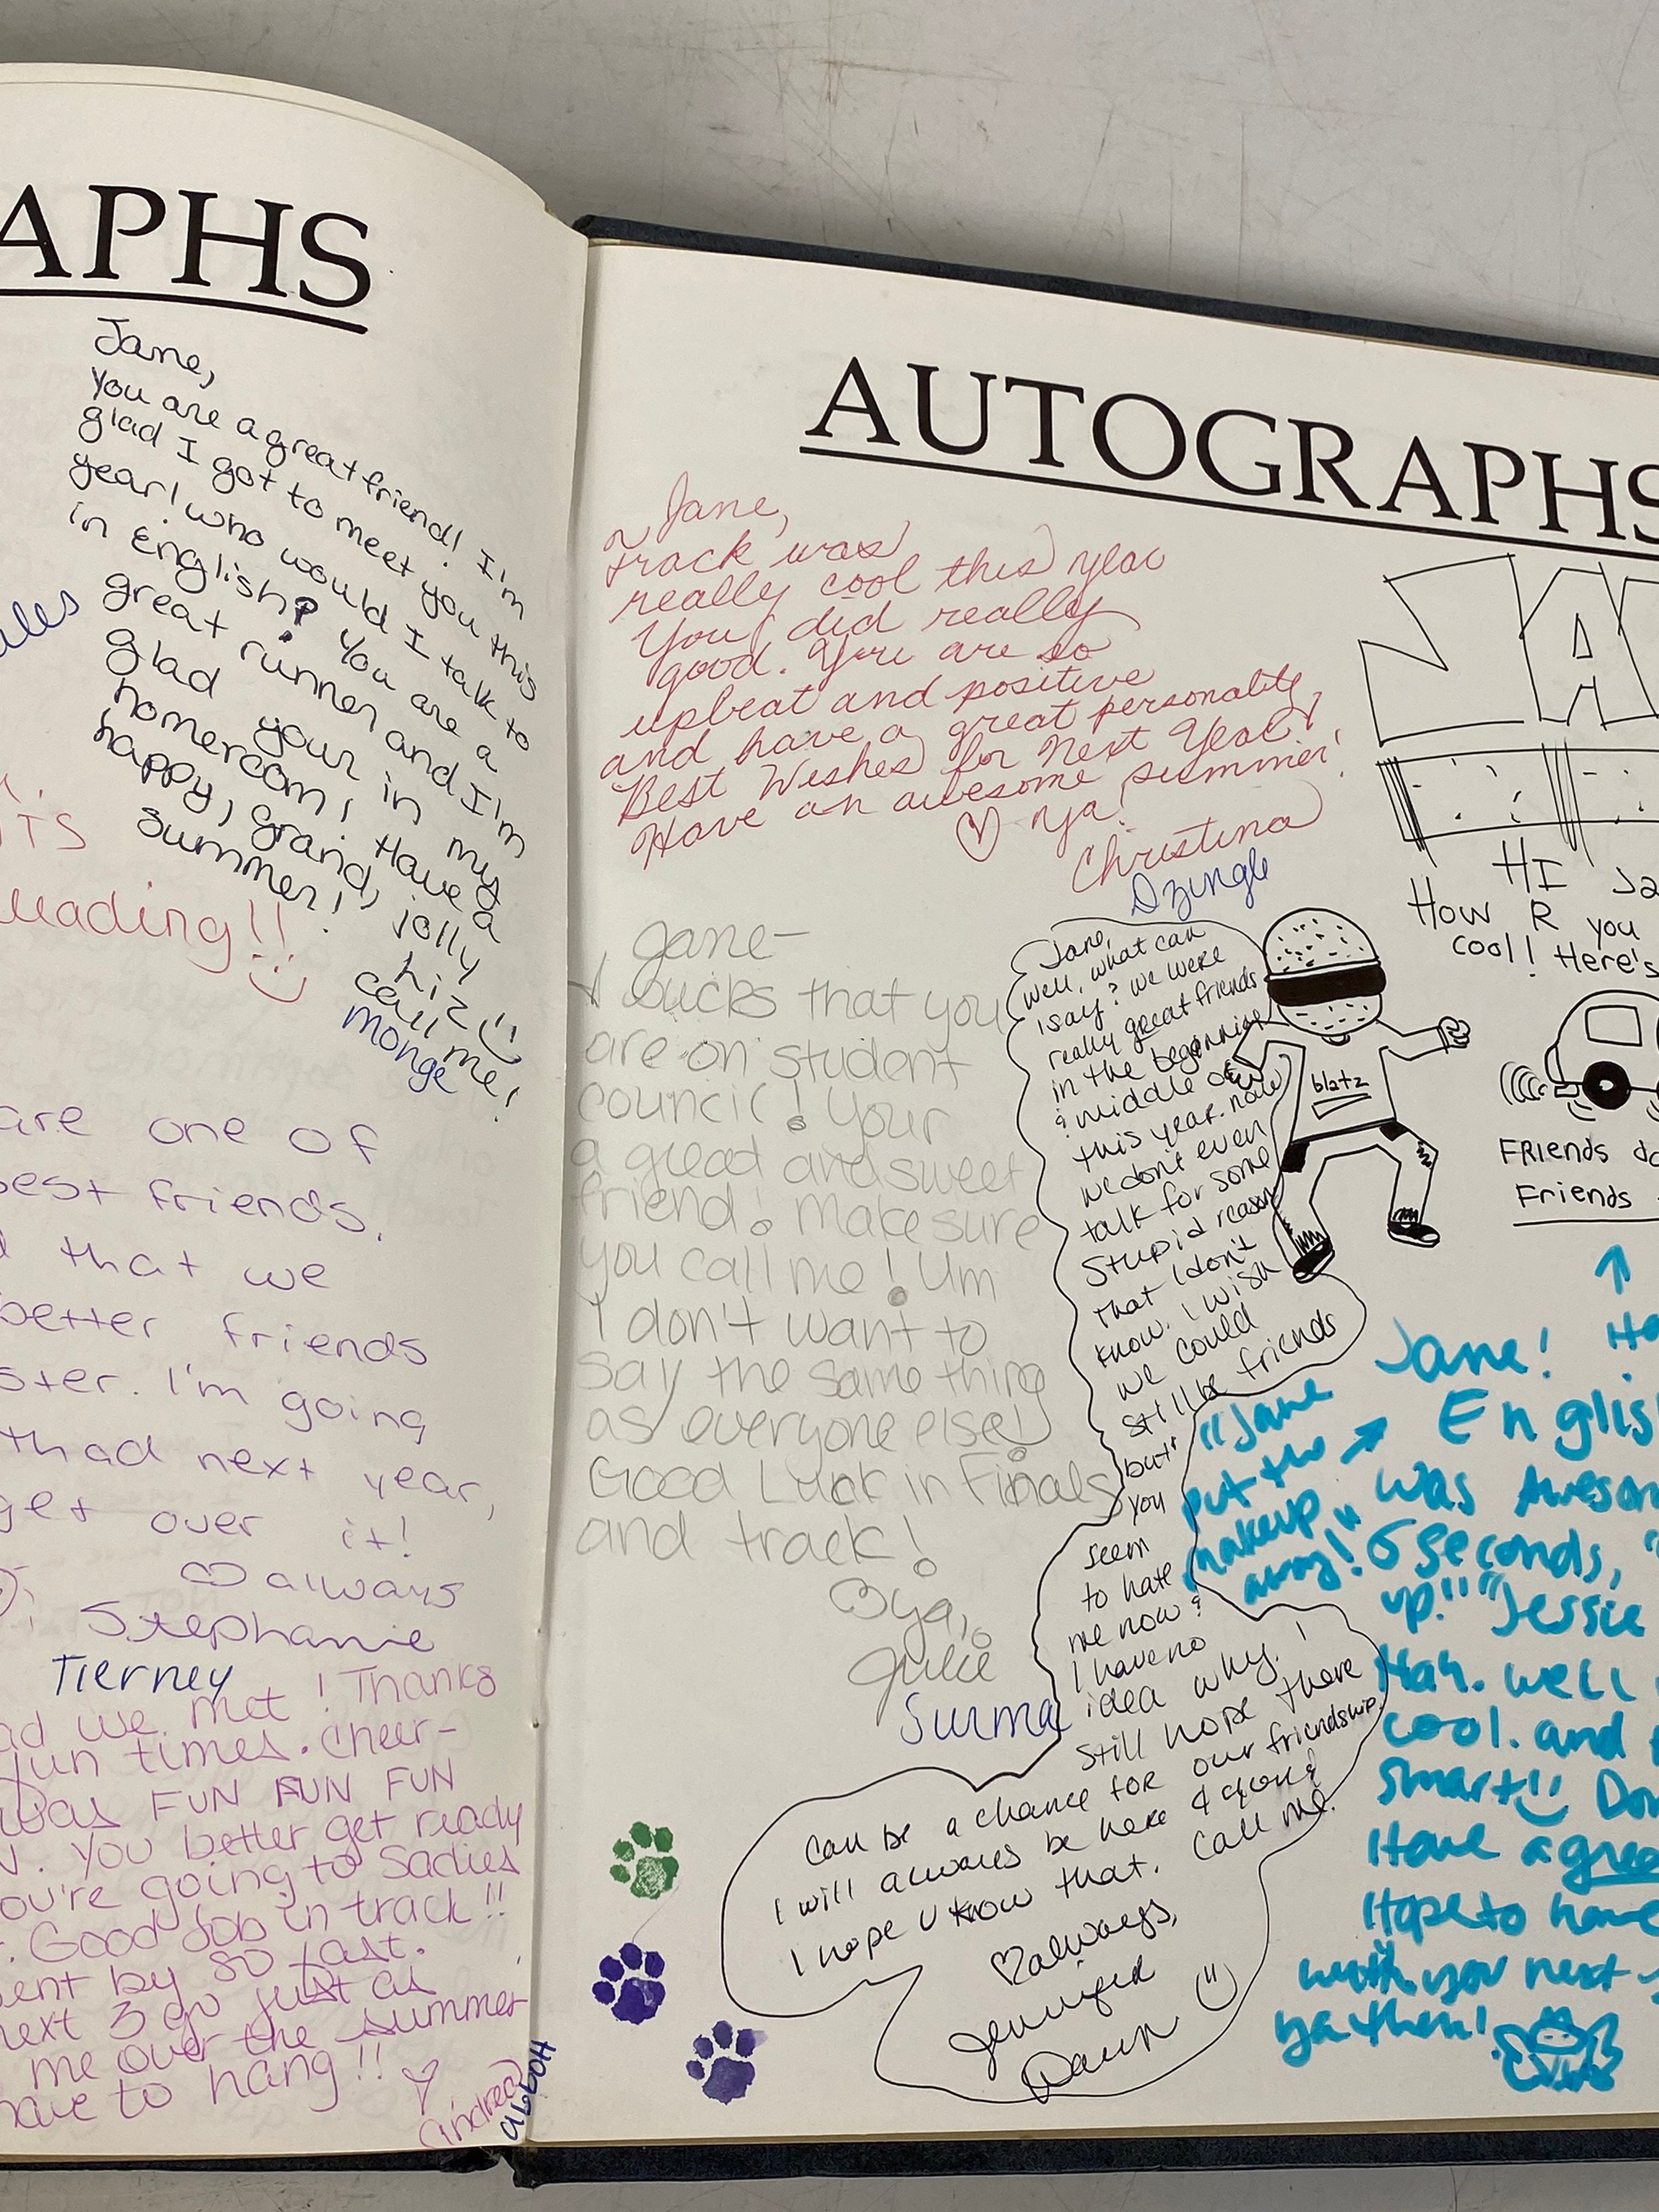 APHS
Jane,
You are a great friend! I'm
glad I got to meet you this
year! who would I talk to
in English? You are a
great runner and I'm
glad your in my
homercom! Have a
happy, grand, jolly
summer!
hiz
call me!
Monge
ales
ITS
leading!!
are one of
best friends.
that we
better friends
ster. I'm going
thad next year,
get over it!
♡ always
Stephanie
Tierney
ad we met! Thanks
fun times. Cheer-
was FUN FUN FUN
. You better get ready
ou're going to Sadies
. Good Job in track!!
ent by so fast.
next 3 go just as
me over the summer
have to hang!!
♡
Andrea
Abbott
AUTOGRAPHS
Jane,
Track was
really cool this year
You did really
good. You are so
upbeat and positive
and have a great personality,
Best Wishes for Next Year!
Have an awesome summer!
♡ Ya!
Christina
Dzingle
Jane-
I sucks that you
are on student
council! Your
a great and sweet
friend! Make sure
you call me! Um
I don't want to
say the same thing
as everyone else!
Good Luck in Finals
and track!
♡ ya,
Julie
Surma
Jane,
well, what can
I say? we were
really great friends
in the beginning
& middle of
this year. now
we don't even
talk for some
stupid reason
that I don't
know. I wish
we could
still be friends
but
you
seem
to hate
me now &
I have no
idea why. I
still hope there
can be a chance for our friendship.
I will always be here 4 you &
I hope U know that. Call me.
♡always,
Jennifer
Dawn
JA
HI Ja
How R you
cool! Here's
blatz
Friends do
Friends
Jane! He
Englis
was Awesom
6 seconds,
up!" "Jessie
Hah. well
cool. and
smart!! Don
Have a grea
Hope to have
with you next
ya then!
"Jane
put the
makeup
away!"